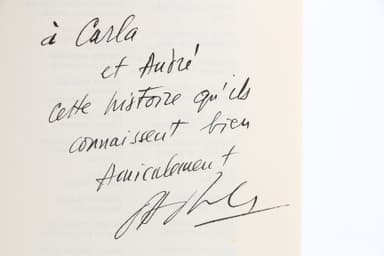 à Carla
et André
cette histoire qu'ils
connaissent bien
Amicalement